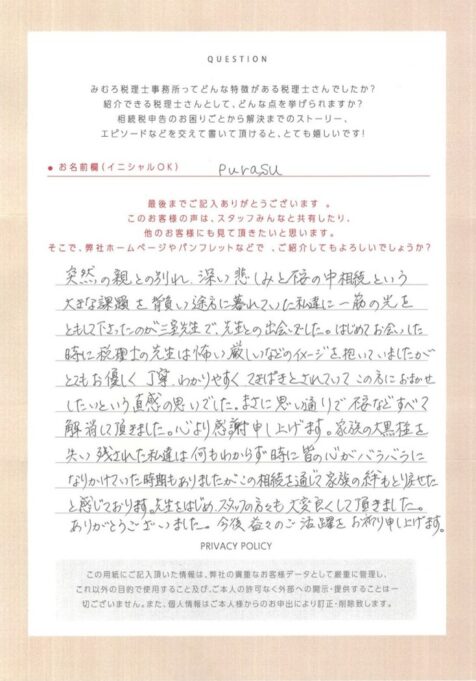 QUESTION
みむろ税理士事務所ってどんな特徴がある税理士さんでしたか?
紹介できる税理士さんとして、どんな点を挙げられますか?
相続税申告のお困りごとから解決までのストーリー、
エピソードなどを交えて書いて頂けると、とても嬉しいです!
● お名前欄(イニシャルOK) purasu
最後までご記入ありがとうございます 。
このお客様の声は、スタッフみんなと共有したり、
他のお客様にも見て頂きたいと思います。
そこで、弊社ホームページやパンフレットなどで 、ご紹介してもよろしいでしょうか?
突然の親との別れ、深い悲しみと不安の中相続という
大きな課題を背負い途方に暮れていた私達に一筋の光を
ともして下さったのが三室先生で、先生との出会いでした。はじめてお会いした
時に税理士の先生は怖い厳しいなどのイメージを抱いていましたが
とてもお優しく丁寧、わかりやすくてきぱきとされていてこの方におまかせ
したいという直感の思いでした。まさに思い通りで不安などすべて
解消して頂きました。心より感謝申し上げます。家族の大黒柱を
失い残された私達は何もわからず時に皆の心がバラバラに
なりかけていた時期もありましたがこの相続を通じて家族の絆もとり戻せた
と感じております。先生をはじめ、スタッフの方々も大変良くして頂きました。
ありがとうございました。今後益々のご活躍をお祈り申し上げます。
PRIVACY POLICY
この用紙にご記入頂いた情報は、弊社の貴重なお客様データとして厳重に管理し、
これ以外の目的で使用すること及び、ご本人の許可なく外部への開示・提供することは一
切ございません。また、個人情報はご本人様からのお申出により訂正・削除致します。